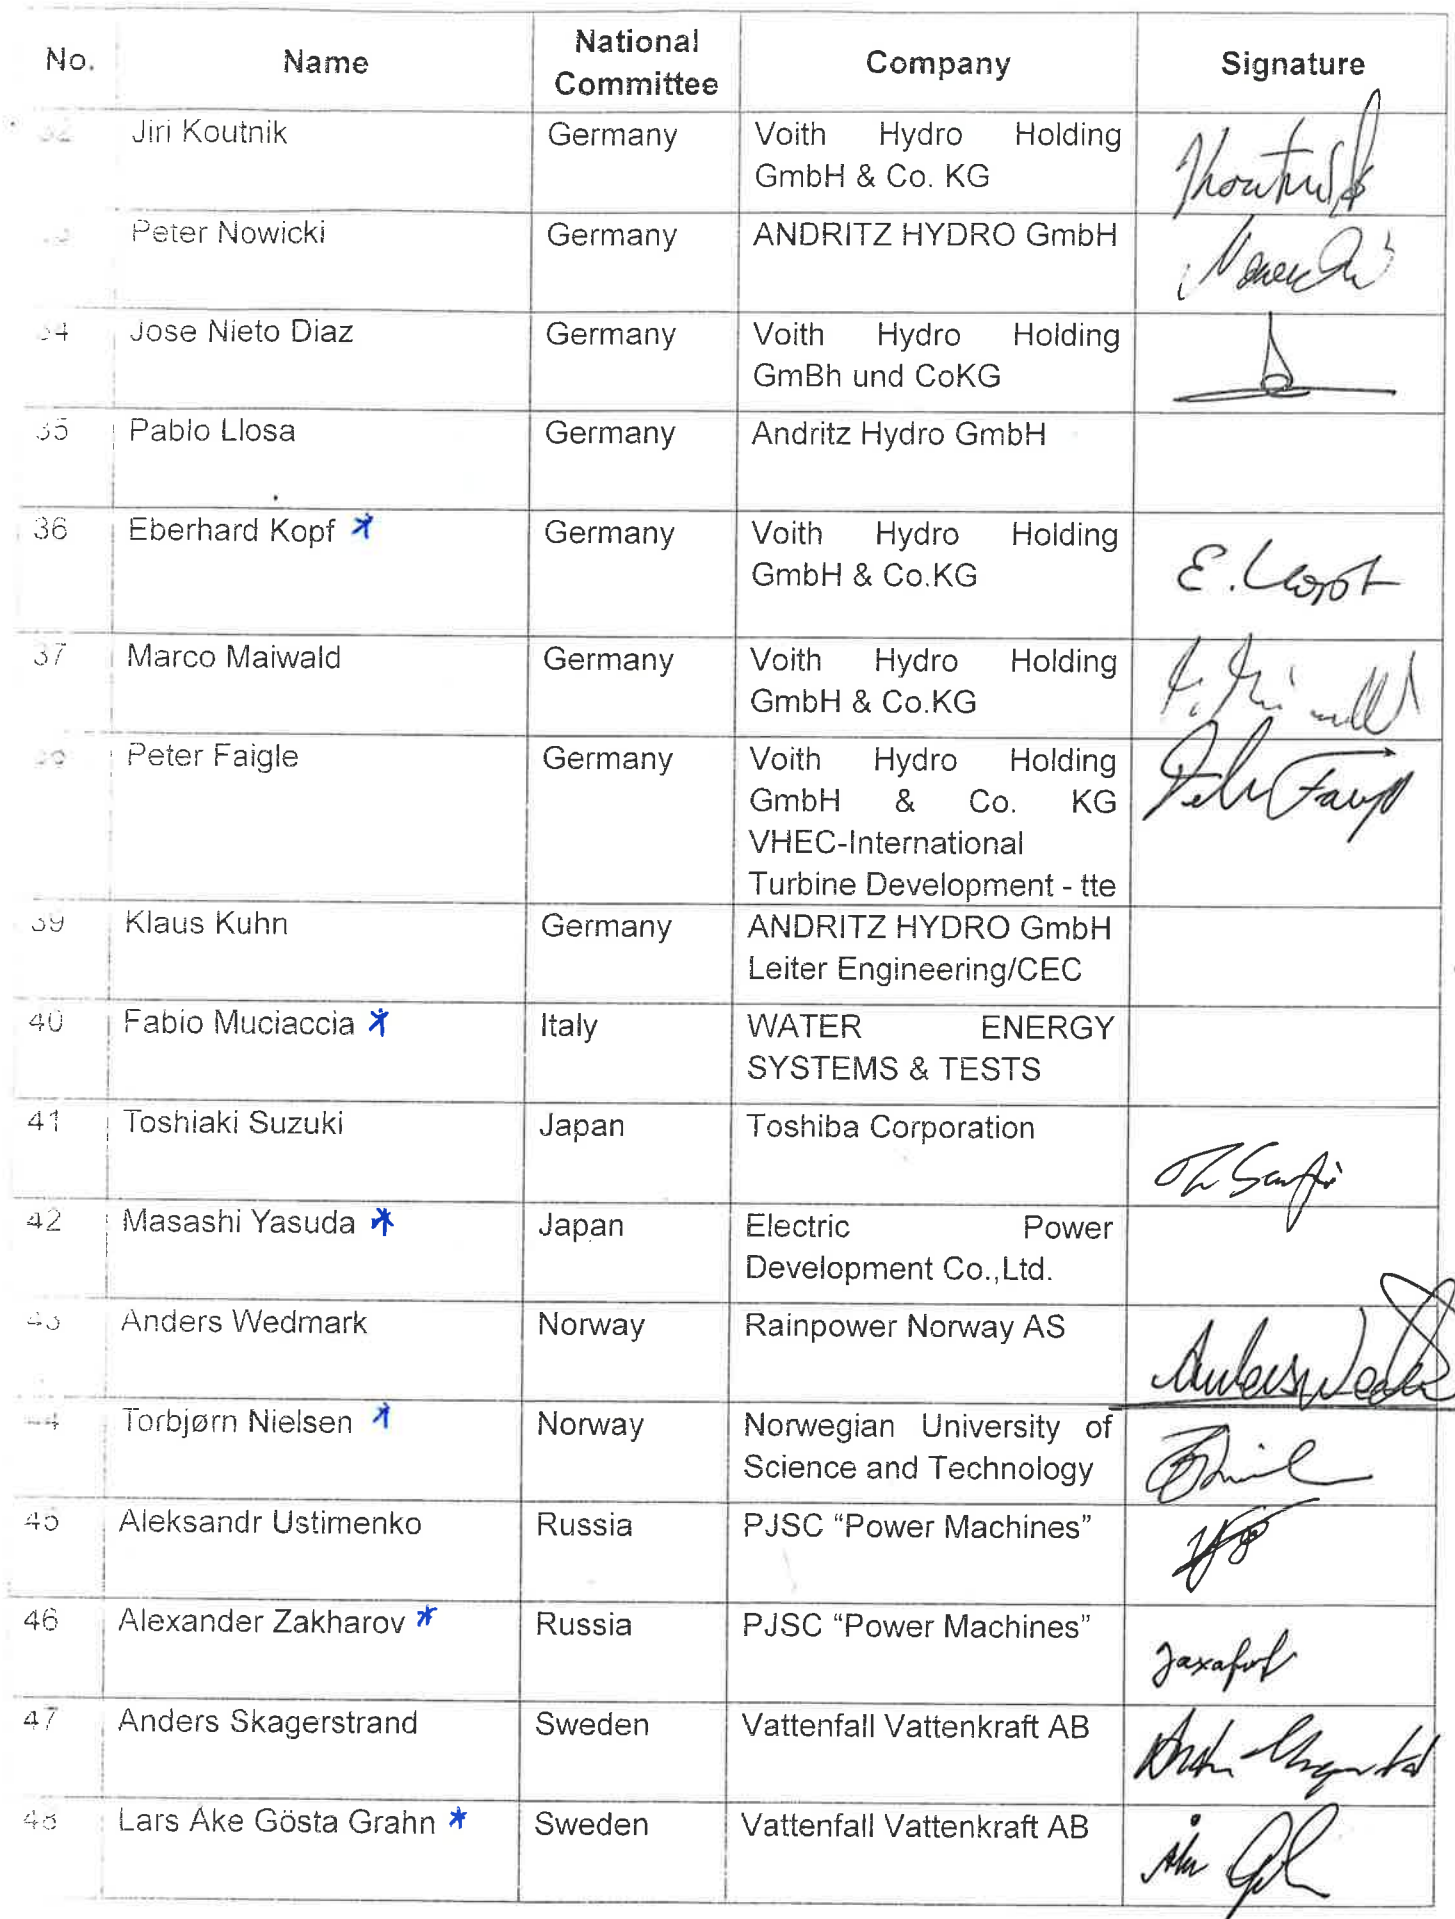 No. Name National Committee Company Signature
32 Jiri Koutnik Germany Voith Hydro Holding
GmbH & Co. KG
Peter Nowicki Germany ANDRITZ HYDRO GmbH
34 Jose Nieto Diaz Germany Voith Hydro Holding
GmBh und CoKG
35 Pablo Llosa Germany Andritz Hydro GmbH
36 Eberhard Kopf * Germany Voith Hydro Holding
GmbH & Co.KG
E. Kopf
37 Marco Maiwald Germany Voith Hydro Holding
GmbH & Co.KG
Peter Faigle Germany Voith Hydro Holding
GmbH & Co. KG
VHEC-International
Turbine Development - tte
39 Klaus Kuhn Germany ANDRITZ HYDRO GmbH
Leiter Engineering/CEC
40 Fabio Muciaccia * Italy WATER ENERGY
SYSTEMS & TESTS
41 Toshiaki Suzuki Japan Toshiba Corporation
42 Masashi Yasuda * Japan Electric Power
Development Co.,Ltd.
43 Anders Wedmark Norway Rainpower Norway AS
44 Torbjørn Nielsen * Norway Norwegian University of
Science and Technology
45 Aleksandr Ustimenko Russia PJSC “Power Machines”
46 Alexander Zakharov * Russia PJSC “Power Machines”
47 Anders Skagerstrand Sweden Vattenfall Vattenkraft AB
48 Lars Ake Gösta Grahn * Sweden Vattenfall Vattenkraft AB